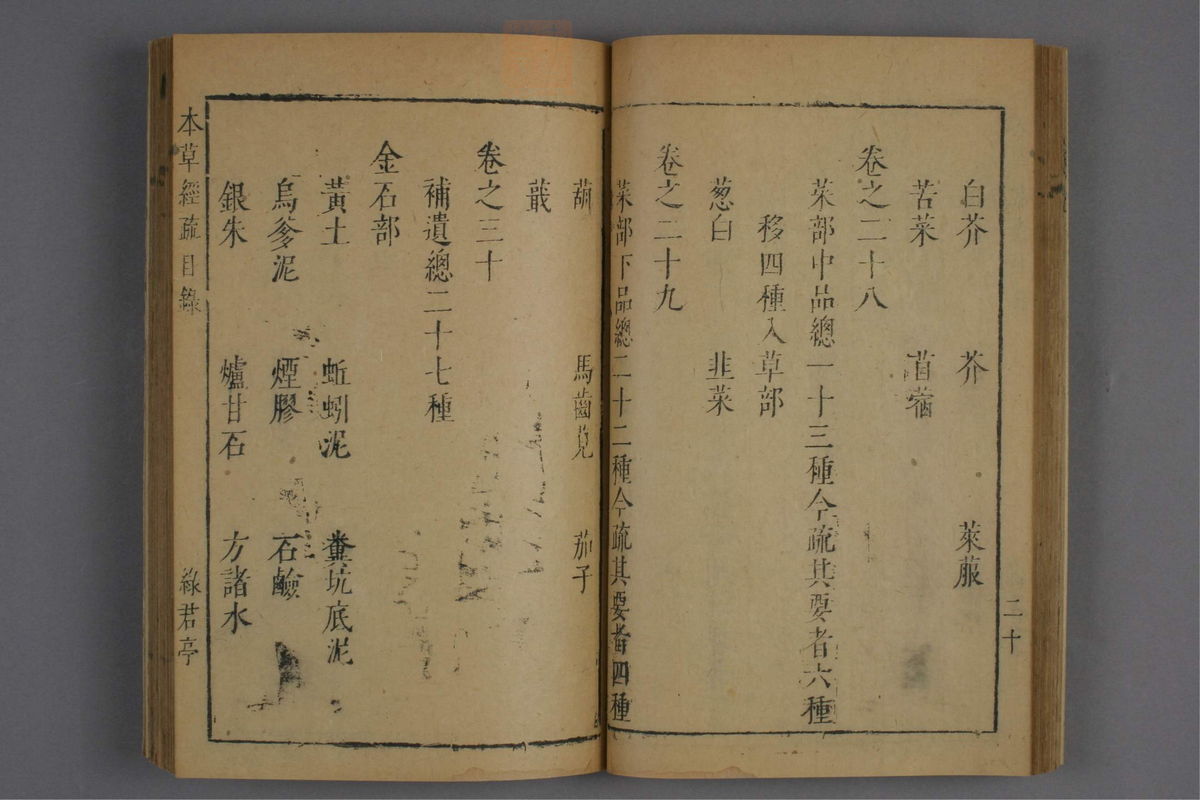 白芥 芥 萊菔
苦菜 苜蓿
卷之二十八
菜部中品總一十三種今疏其要者六種
移四種入草部
葱白 韭菜
卷之二十九
菜部下品總二十二種今疏其要者四種
二十
葫 馬齒莧 茄子
蕺
卷之三十
補遺總二十七種
金石部
黃土 蚯蚓泥 糞坑底泥
烏爹泥 煙膠 石鹼
銀朱 爐甘石 方諸水
本草經疏 目錄 綠君亭